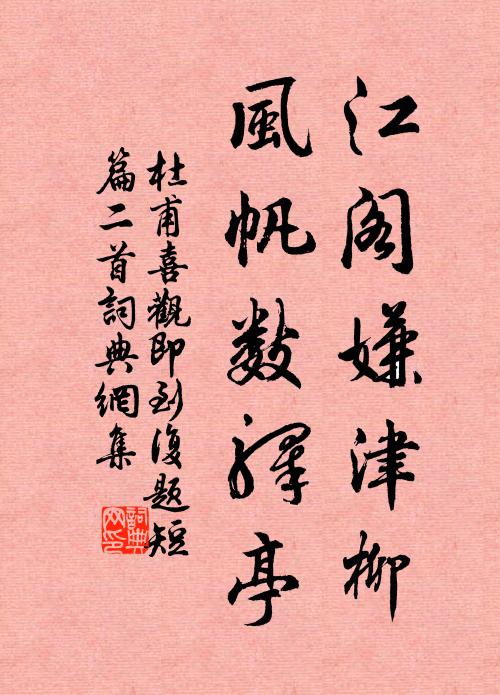 江阁嫌津柳
風帆数驛亭
杜甫喜觀即到復題短
篇二首詞典網集
詞典
网印